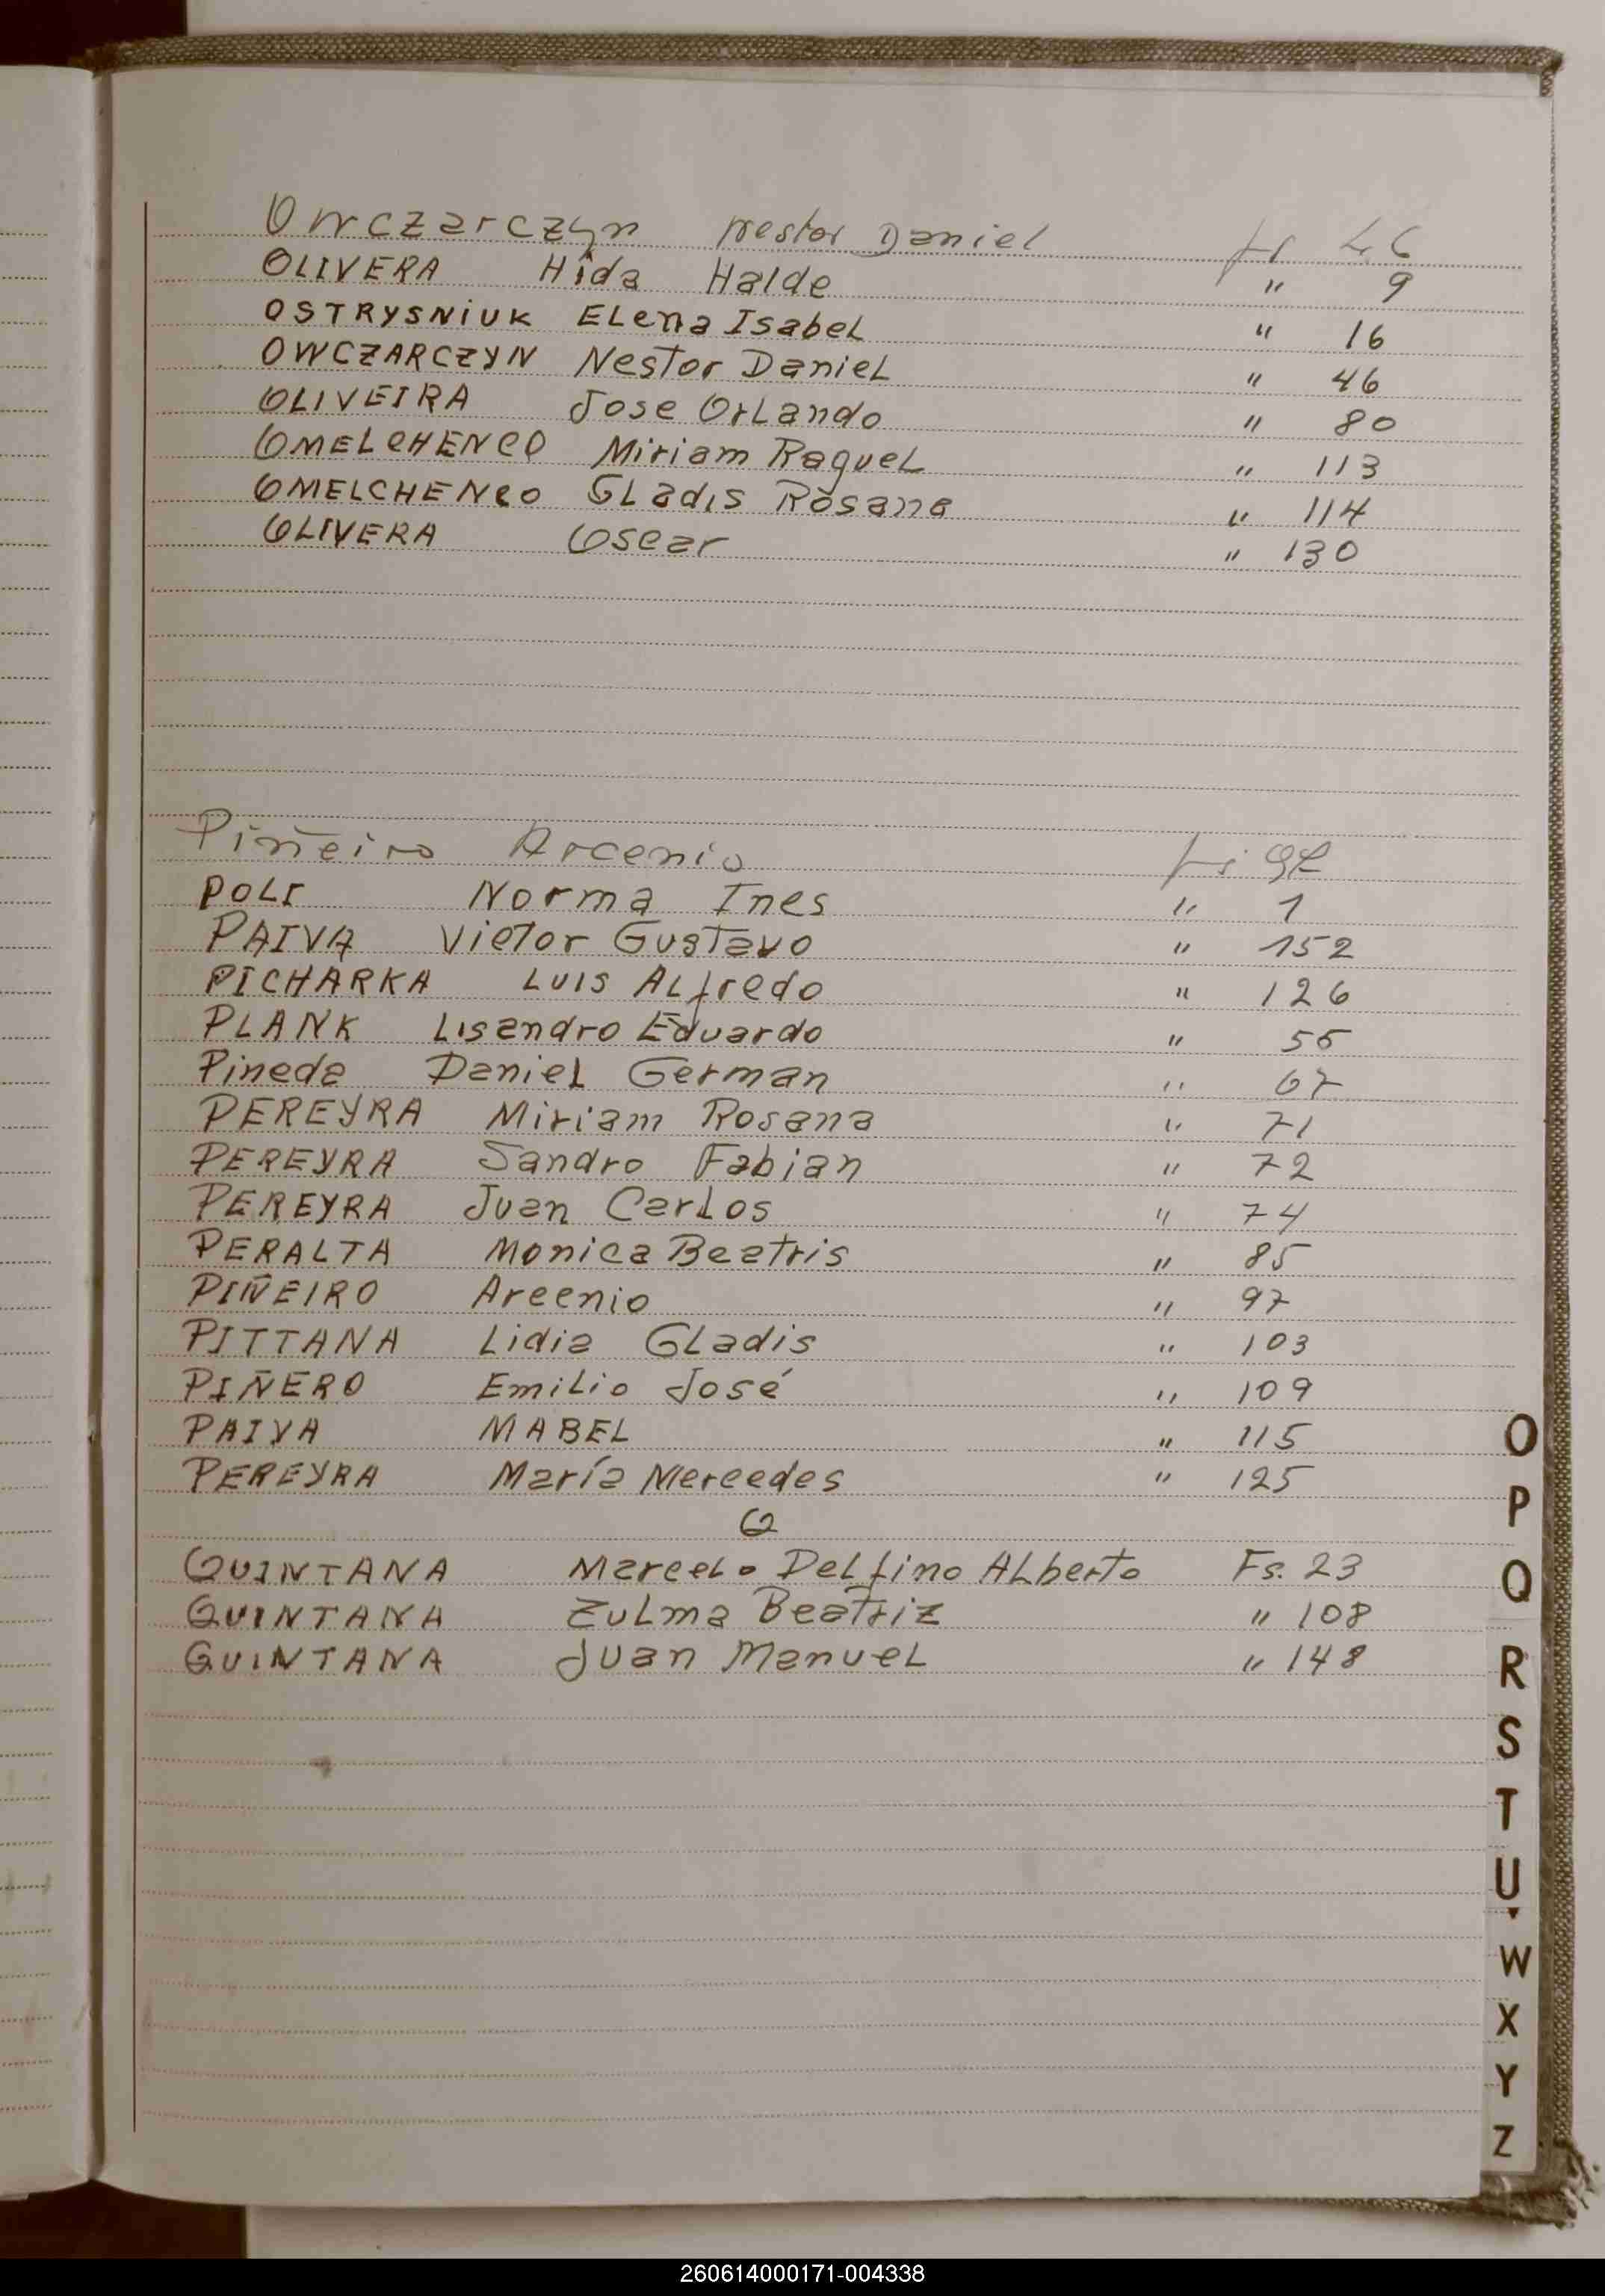 Owczarczyn Nestor Daniel fs 46
OLIVERA Hida Halde " 9
OSTRYSNIUK ELena IsabeL " 16
OWCZARCZYN Nestor DanieL " 46
OLIVEIRA Jose OrLando " 80
OMELCHENCO Miriam RaqueL " 113
OMELCHENCO GLadis Rosana " 114
OLIVERA Oscar " 130
Piñeiro Arcenio fs 97
POLI Norma Ines " 1
PAIVA Victor Gustavo " 152
PICHARKA Luis ALfredo " 126
PLANK Lisandro Eduardo " 55
Pineda DanieL German " 67
PEREYRA Miriam Rosana " 71
PEREYRA Sandro Fabian " 72
PEREYRA Juan CarLos " 74
PERALTA Monica Beatris " 85
PIÑEIRO Arcenio " 97
PITTANA Lidia GLadis " 103
PIÑERO EmiLio José " 109
PAIVA MABEL " 115
PEREYRA María Mercedes " 125
Q
QUINTANA MarceLo DeLfino ALberto Fs. 23
QUINTANA ZuLma Beatriz " 108
QUINTANA Juan ManueL " 148
O
P
Q
R
S
T
U
W
X
Y
Z
260614000171-004338